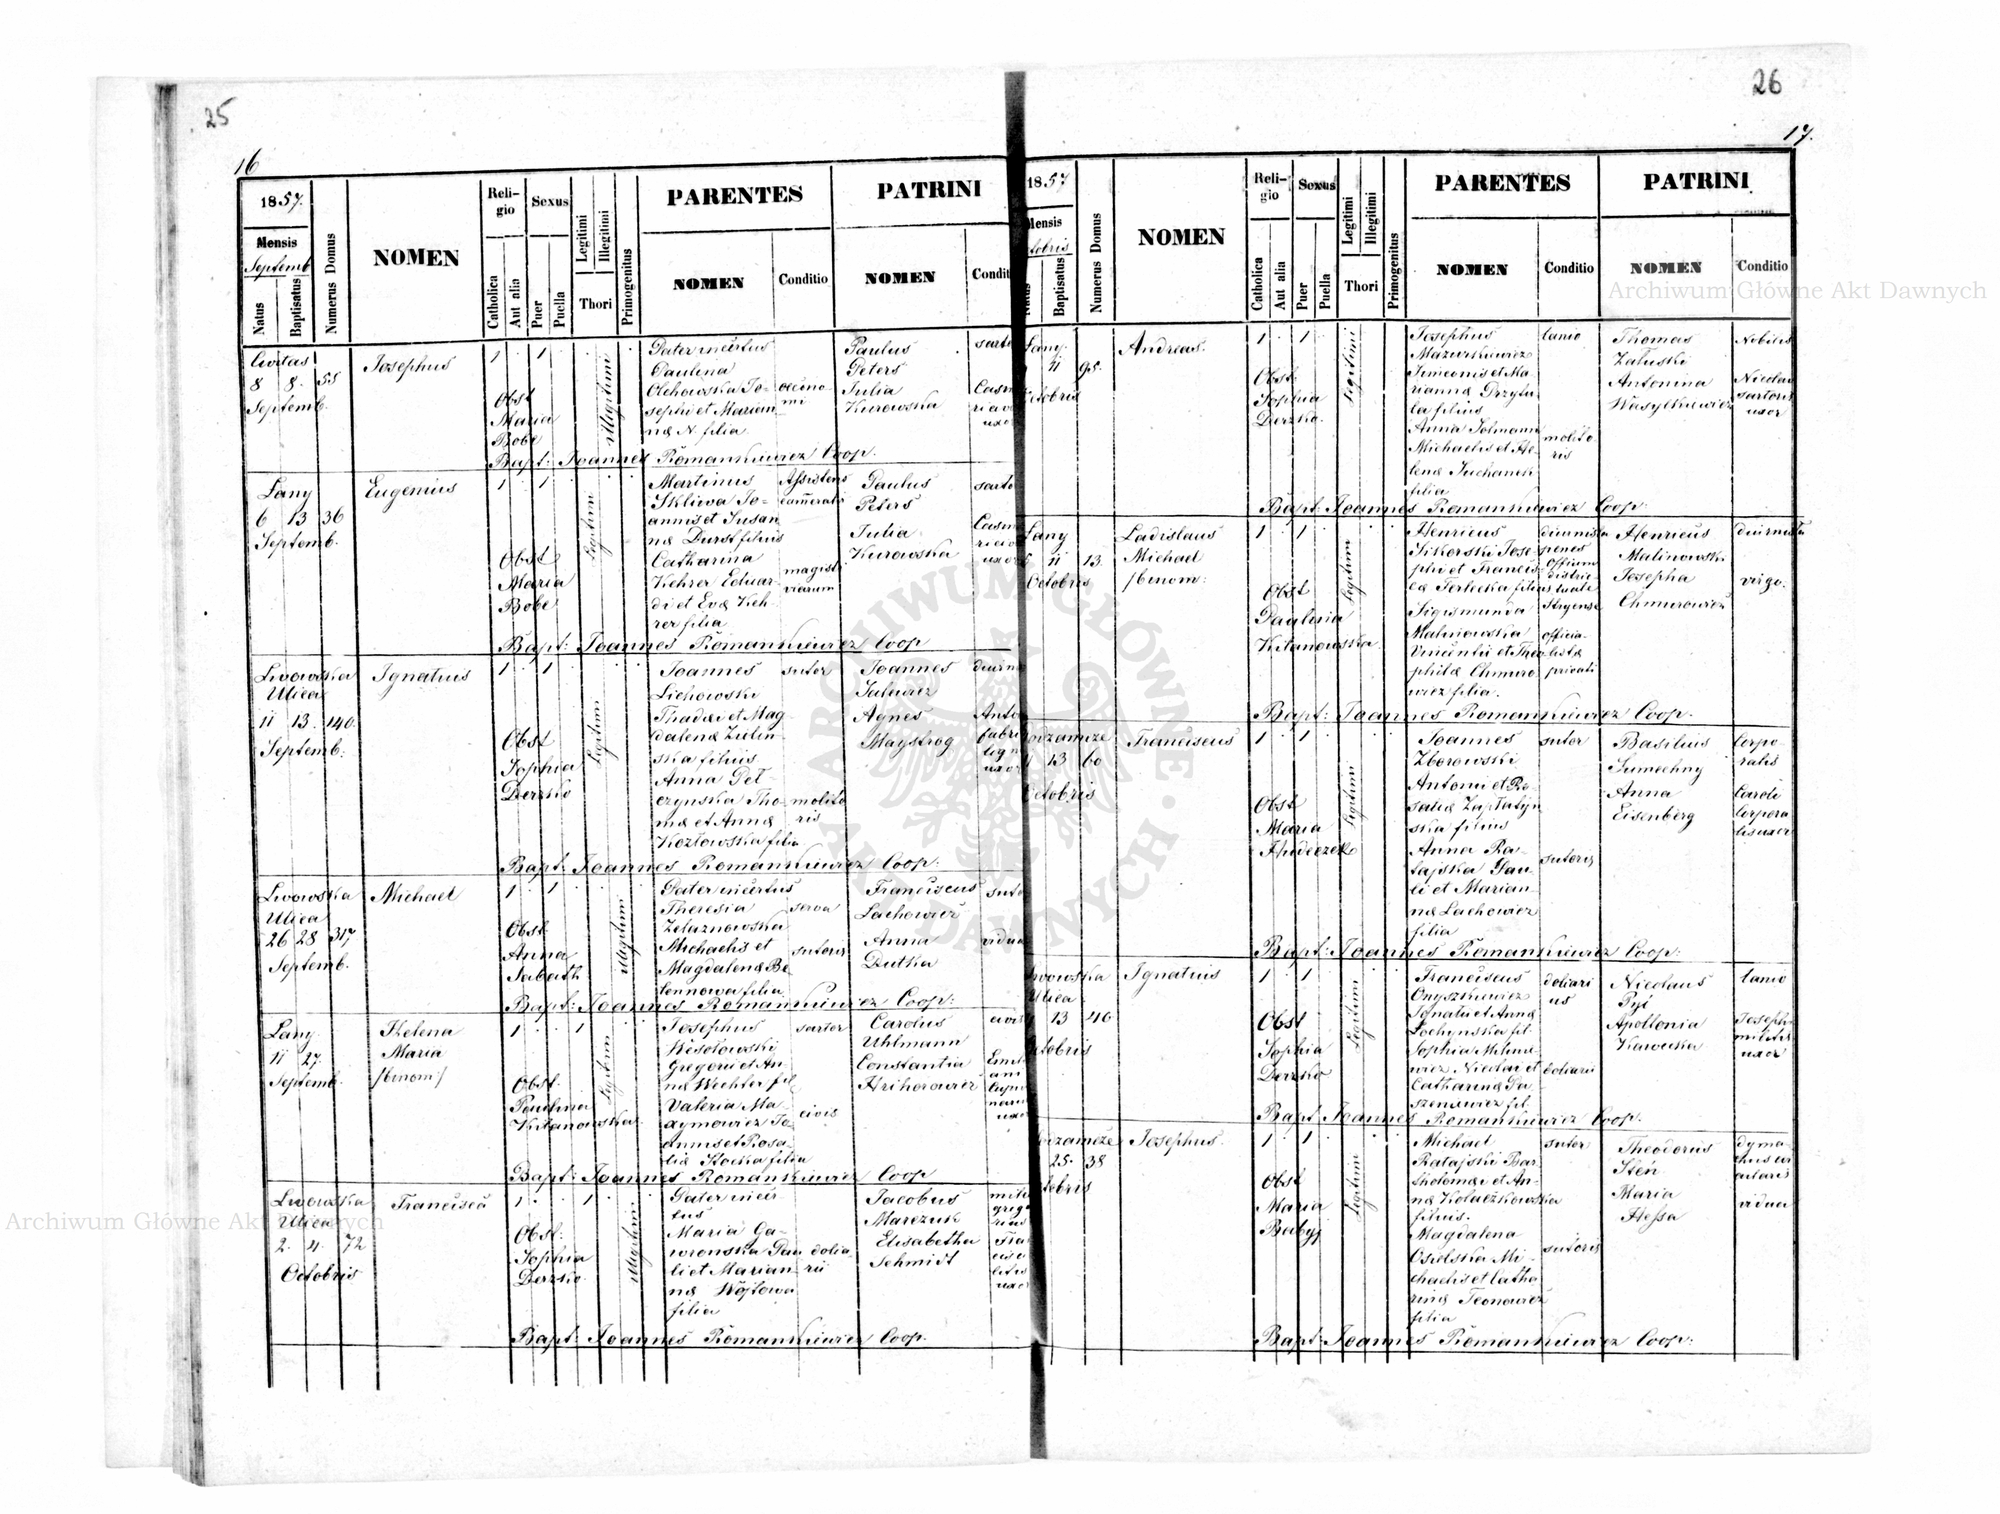 25
16
1857.
Mensis
Septemb
Natus
Baptisatus
Numerus Domus
NOMEN
Reli-
gio
Catholica
Aut alia
Sexus
Puer
Puella
Legitimi
Illegitimi
Thori
Primogenitus
PARENTES
NOMEN
Conditio
PATRINI
NOMEN
Condit
Civitas
8 8. 55
Septemb.
Josephus
1 1
Obst
Maria
Bobe
Illegitimi
Pater incertus
Paulina
Olchowska Jo-
sephi et Marian
næ N. filia
oecono-
mi
Paulus
Peters
Julia
Kurowska
Bapt: Joannes Romankiewicz Coop.
Lany
6 13 36
Septemb.
Eugenius
1 1
Obst
Maria
Bobe
Legitimi
Martinus
Skliwa Jo-
annis et Susan
næ Durst filius
Catharina
Kehrer Eduar-
di et Evæ Keh-
rer filia
Assistens
cameralis
magistri
viarum
Paulus
Peters
Julia
Kurowska
Bapt: Joannes Romankiewicz Coop
Lwowska
Ulica
11 13. 140.
Septemb:
Ignatius
1 1
Obst
Sophia
Derzko
Legitimi
Joannes
Lichowski
Thadæi et Mag-
dalenæ Zielin-
ska filius
Anna Peł-
czynska Tho-
mæ et Annæ
Kozłowska filia
sutor
molito
ris
Joannes
Jaluwiez
Agnes
Maystrog
Bapt: Joannes Romankiewicz Coop:
Lwowska
Ulica
26 28 317
Septemb.
Michael
1 1
Obst.
Anna
Sabath
Illegitimi
Pater incertus
Theresia
Zeluznowska
Michaelis et
Magdalenæ Be
lennowa filia
serva
sutoris
Franciscus
Lachowicz
Anna
Dutka
vidua
Bapt: Joannes Romankiewicz Coop:
Lany
11 27.
Septemb.
Helena
Maria
/binom/
1 1
Obst.
Paulina
Kitanowska
Legitimi
Josephus
Wesołowski
Gregorii et An-
næ Wechter fil
Valeria Ma-
xymowicz Jo
annis et Rosa-
liæ Stocka filia
sartor
civis
Carolus
Uhlmann
Constantia
Hrihorowicz
civis
Bapt: Joannes Romankiewicz Coop
Lwowska
Ulica
2. 4. 72
Octobris
Francisca
1 1
Obst:
Sophia
Derzko
Illegitimi
Pater incer
tus
Maria Ga-
wronska Pau
li et Marian-
næ Wójtowa
filia
dolia-
rii
Jacobus
Marczuk
Elisabetha
Schmidt
Bapt: Joannes Romankiewicz Coop.
26
17.
1857
Mensis
tobris
Natus
Baptisatus
Numerus Domus
NOMEN
Reli-
gio
Catholica
Aut alia
Sexus
Puer
Puella
Legitimi
Illegitimi
Thori
Primogenitus
PARENTES
NOMEN
Conditio
PATRINI
NOMEN
Conditio
Lany
11 95.
Andreas.
1 1
Obst
Sophia
Derzko.
Legitimi
Josephus
Mazurkiewicz
Simeonis et Ma
riannæ Przytu
la filius
Anna Solmann
Michaelis et He
lenæ Suchanek
filia
lanio
molito-
ris
Thomas
Załuski
Antonina
Wasylkiewicz
Nobilis
Nicolai
sartoris
uxor
Bapt: Joannes Romankiewicz Coop
Lany
11 13
Octobris
Ladislaus
Michael
/binom:
1 1
Obst
Paulina
Kitanowska
Legitimi
Henricus
Sikorski Jose-
phi et Francis-
cæ Terlecka filius
Sigismunda
Malinowska
Vincentii et Theo
philæ Chmuro
wicz filia.
diurnista
penes
Officium
distric-
tuale
Stryense
officia-
listæ
privati
Henricus
Malinowski
Josepha
Chmurowicz
diurnista
virgo.
Bapt: Joannes Romankiewicz Coop.
13 60
Octobris
Franciscus
1 1
Obst
Maria
Hudeczek
Legitimi
Joannes
Zborowski
Antonii et Ro
saliæ Zapłatyn
ska filius
Anna Ra-
tajska Pau-
li et Marian-
næ Lachowicz
filia
sutor
sutoris
Basilius
Sumechny
Anna
Eisenberg
Corpo-
ralis
Caroli
Corpora
lis uxor
Bapt: Joannes Romankiewicz Coop:
Lwowska
Ulica
13 46
Octobris
Ignatius
1 1
Obst
Sophia
Derzko
Legitimi
Franciscus
Onyszkiewicz
Ignatii et Annæ
Łochynska fil.
Sophia Milnie
wicz Nicolai et
Catharinæ Pa
szeniewicz fil.
doliari
us
doliarii
Nicolaus
Pyć
Apollonia
Kawecka
lanio
Josephi
militis
uxor
Bapt: Joannes Romankiewicz Coop.
25. 38
Josephus.
1 1
Obst
Maria
Babyj
Legitimi
Michael
Ratajski Bar-
tholomæi et An-
næ Kolaczkowska
filius.
Magdalena
Osielska Mi-
chaelis et Catha
rinæ Teonowicz
filia
sutor
sutoris
Theodorus
Steń
Maria
Hessa
vidua
Bapt: Joannes Romankiewicz Coop:
Archiwum Główne Akt Dawnych
Archiwum Główne Akt Dawnych
ARCHIWUM GŁÓWNE AKT DAWNYCH